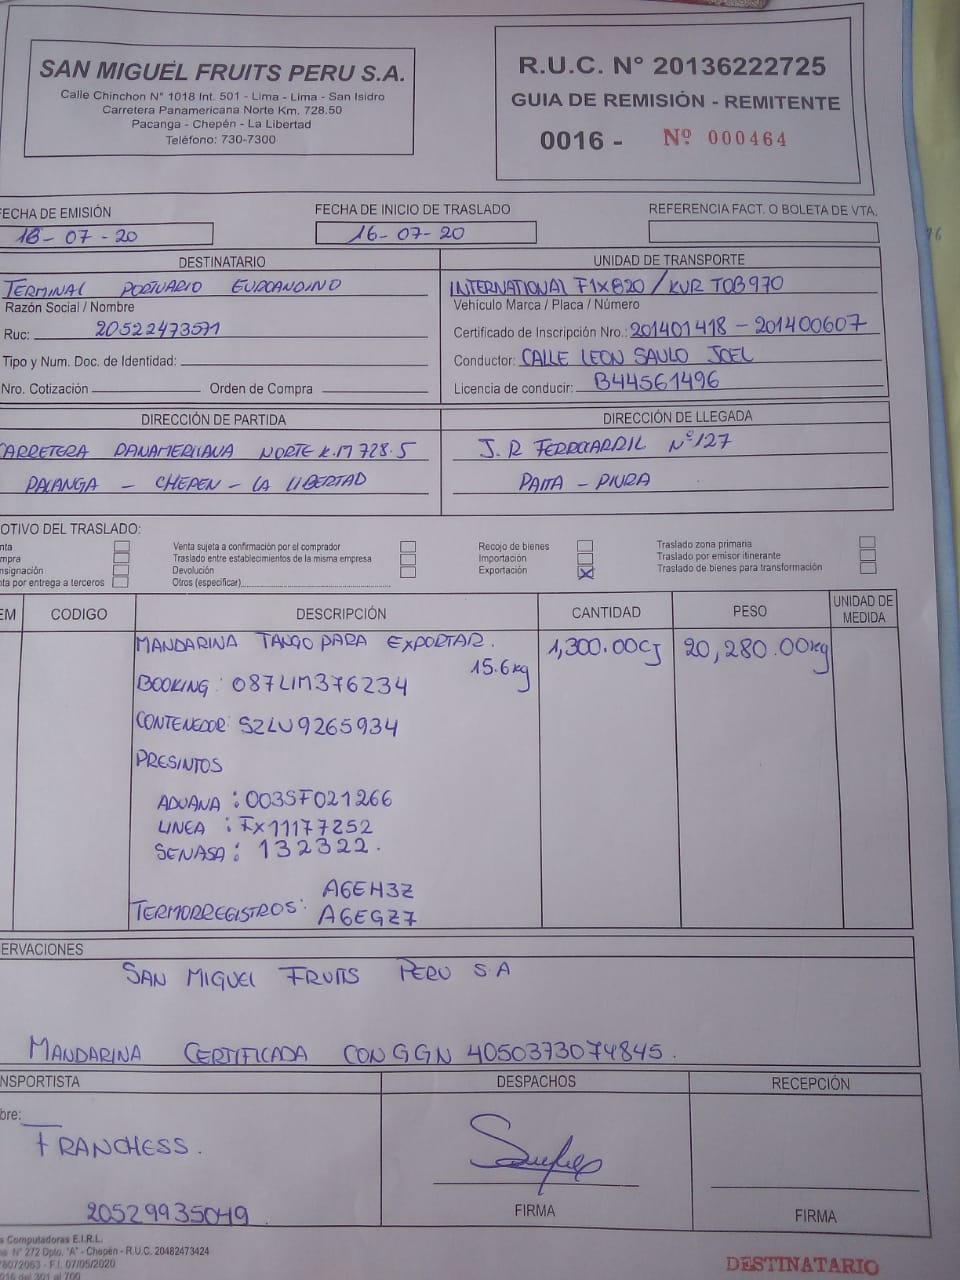 SAN MIGUEL FRUITS PERU S.A.
Calle Chinchon N° 1018 Int. 501 - Lima - Lima - San Isidro
Carretera Panamericana Norte Km. 728.50
Pacanga - Chepén - La Libertad
Teléfono: 730-7300
R.U.C. N° 20136222725
GUIA DE REMISIÓN - REMITENTE
0016 - Nº 000464
FECHA DE EMISIÓN
16-07-20
FECHA DE INICIO DE TRASLADO
16-07-20
REFERENCIA FACT. O BOLETA DE VTA.
DESTINATARIO
TERMINAL PORTUARIO EUROANDINO
Razón Social / Nombre
Ruc: 20522473571
Tipo y Num. Doc. de Identidad:
Nro. Cotización Orden de Compra
UNIDAD DE TRANSPORTE
INTERNATIONAL F1X820 / KUR T0B970
Vehículo Marca / Placa / Número
Certificado de Inscripción Nro.: 201401418 - 201400607
Conductor: CALLE LEON SAULO JOEL
Licencia de conducir: B44561496
DIRECCIÓN DE PARTIDA
CARRETERA PANAMERICANA NORTE K.M 728.5
PACANGA - CHEPEN - LA LIBERTAD
DIRECCIÓN DE LLEGADA
J.R FERROCARRIL Nº127
PAITA - PIURA
OTIVO DEL TRASLADO:
nta
mpra
nsignación
ta por entrega a terceros
Venta sujeta a confirmación por el comprador
Traslado entre establecimientos de la misma empresa
Devolución
Otros (especificar)
Recojo de bienes
Importación
Exportación X
Traslado zona primaria
Traslado por emisor itinerante
Traslado de bienes para transformación
EM CODIGO DESCRIPCIÓN CANTIDAD PESO UNIDAD DE MEDIDA
MANDARINA TANGO PARA EXPORTAR. 1,300.00CJ 20,280.00kg
15.6kg
BOOKING: 087LIM376234
CONTENEDOR: SZLU9265934
PRESINTOS
ADUANA: 003SF021266
LINEA: FX11177252
SENASA: 132322.
TERMORREGISTROS: A6EH3Z
A6EGZ7
ERVACIONES
SAN MIGUEL FRUITS PERU S.A
MANDARINA CERTIFICADA CON GGN 4050373074845.
NSPORTISTA
bre:
FRANCHESS.
20529935049
DESPACHOS
FIRMA
RECEPCIÓN
FIRMA
s Computadoras E.I.R.L.
N° 272 Dpto. "A" - Chepén - R.U.C. 20482473424
78072063 - F.I. 07/05/2020
016 del 301 al 700
DESTINATARIO